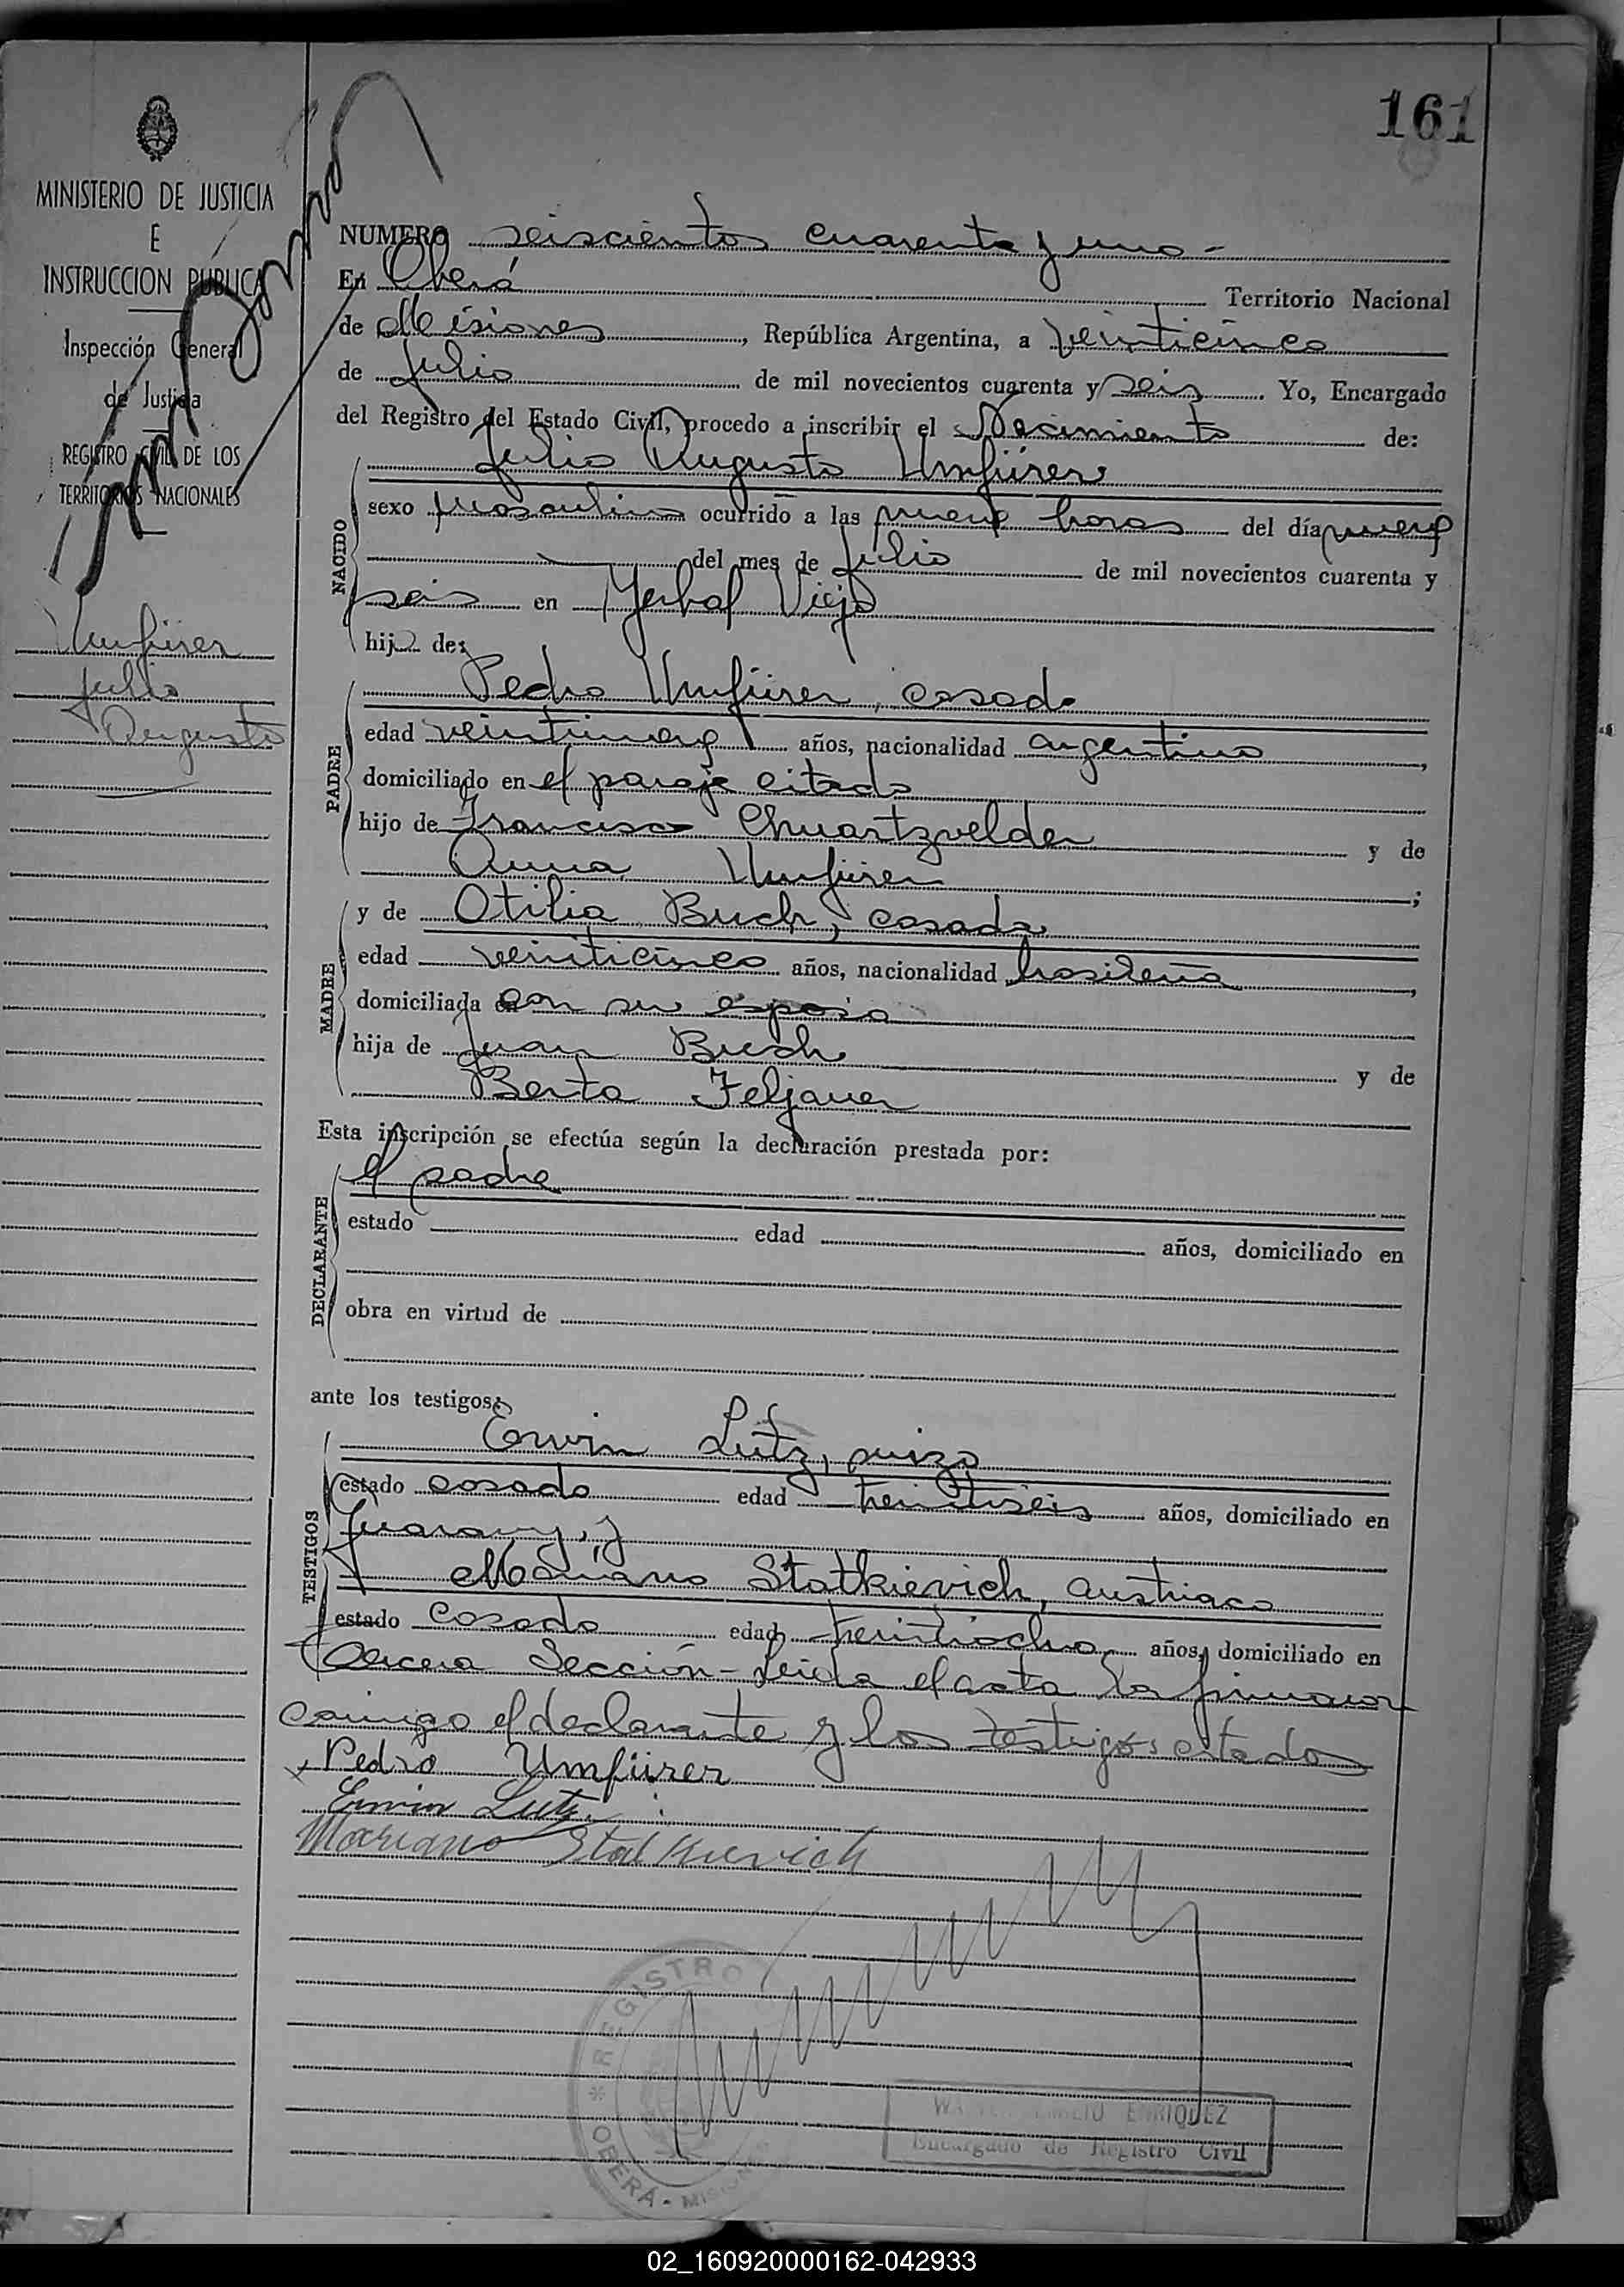 161
MINISTERIO DE JUSTICIA
E
INSTRUCCION PUBLICA
Inspección General
de Justicia
REGISTRO CIVIL DE LOS
TERRITORIOS NACIONALES
Umfürer
Julio
Augusto
NUMERO seiscientos cuarenta y uno-
En Oberá Territorio Nacional
de Misiones, República Argentina, a veinticinco
de Julio de mil novecientos cuarenta y seis. Yo, Encargado
del Registro del Estado Civil, procedo a inscribir el Nacimiento de:
Julio Augusto Umfürer
NACIDO
sexo masculino ocurrido a las nueve horas del día nueve
del mes de Julio de mil novecientos cuarenta y
seis en Yerbal Viejo
hijo de:
PADRE
Pedro Umfürer, casado
edad veintinueve años, nacionalidad argentino,
domiciliado en el paraje citado
hijo de Francisco Chuartzvelder y de
Anna Umfürer;
MADRE
y de Otilia Buch, casada
edad veinticinco años, nacionalidad brasileña,
domiciliada en con su esposo
hija de Juan Buch y de
Berta Feljauer
Esta inscripción se efectúa según la declaración prestada por:
DECLARANTE
el padre
estado edad años, domiciliado en
obra en virtud de
ante los testigos:
TESTIGOS
Erwin Lutz, suizo
estado casado edad treintiseis años, domiciliado en
Guarany, y
Mariano Statkievich, austriaco
estado casado edad treintiocho años, domiciliado en
Tercera Sección- Leida el acta la firmaron
conmigo el declarante y los testigos citados
x Pedro Umfürer
Erwin Lutz.
Mariano Statkievich
REGISTRO
OBERÁ - MISIONES
EMILIO ENRIQUEZ
Encargado de Registro Civil
02_160920000162-042933